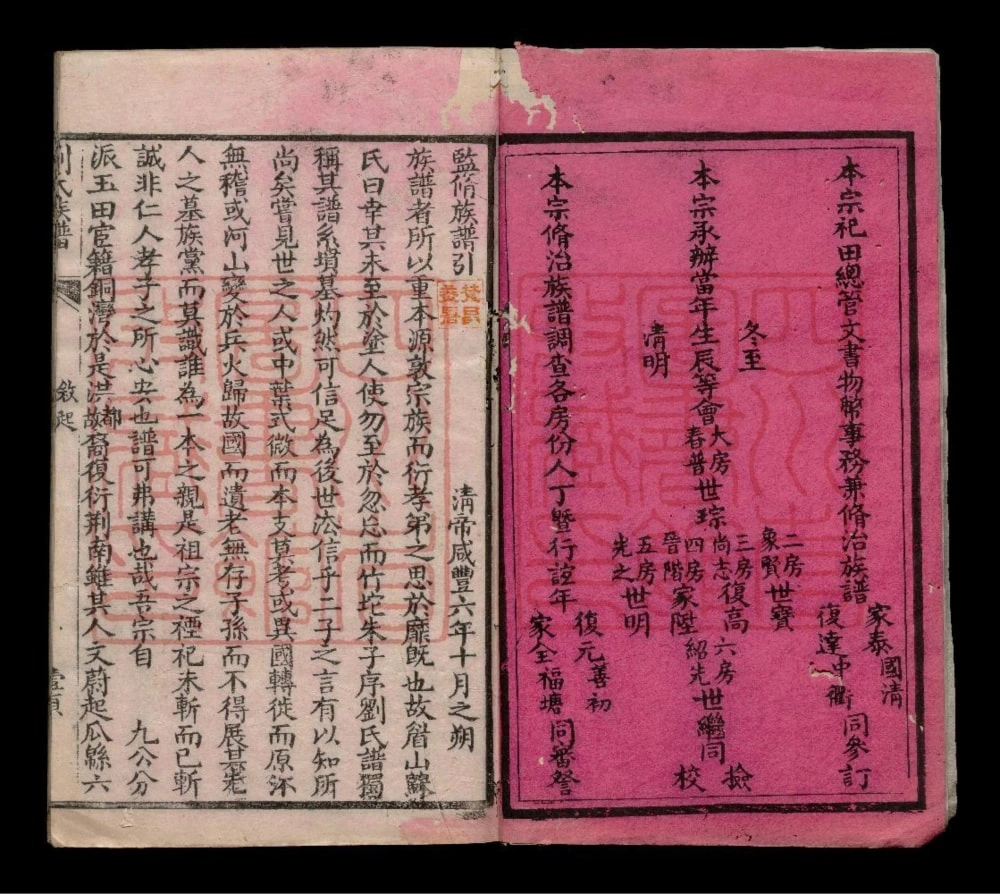 本宗祀田總管文書物幣事務兼脩治族譜
家泰國清
復達中衢
同參訂
冬至
清明
本宗承辦當年生辰等會
大房春普世琮
二房象賢世寶
三房尚志復高
四房晉階家陞
五房先之世明
六房紹先世繼同
撿校
本宗脩治族譜調查各房份人丁暨行諠年
復元善初
家全福塘
同審詧
監脩族譜引
清帝咸豐六年十月之朔
族譜者所以重本源敦宗族而衍孝弟之思於靡既也故眉山蘇
氏曰幸其未至於塗人使勿至於忽忘而竹坨朱子序劉氏譜獨
稱其譜系塋墓灼然可信足為後世法信乎二子之言有以知所
尚矣嘗見世之人或中葉式微而本支莫考或異國轉徙而原派
無稽或河山變於兵火歸故國而遺老無存子孫而不得展其先
人之墓族黨而莫識誰為一本之親是祖宗之禋祀未斬而已斬
誠非仁人孝子之所心安也譜可弗講也哉吾宗自
九公分
派玉田宦籍銅灣於是洪都故裔復衍荆南雖其人文蔚起瓜緜六
劉氏族譜
敘起
壹頁